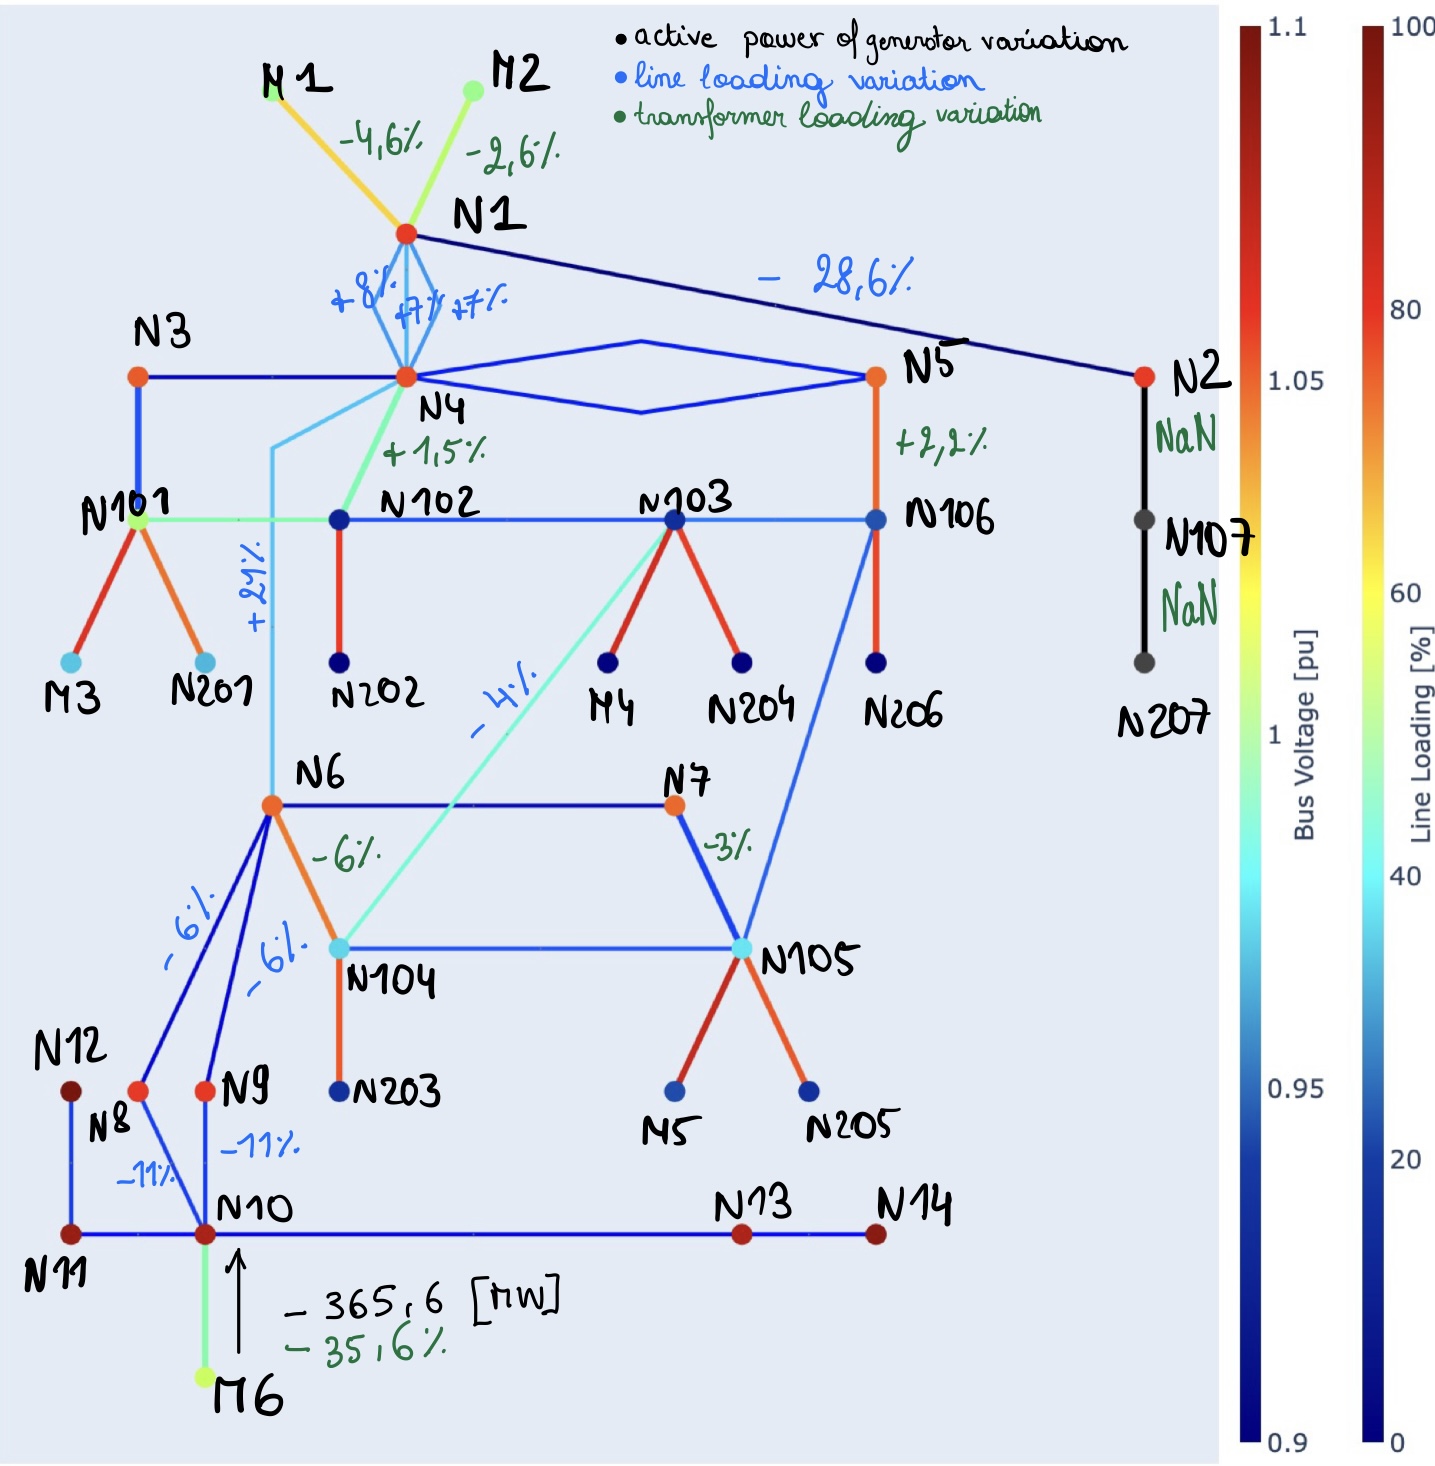 • active power of generator variation
• line loading variation
• transformer loading variation
M1
M2
-4,6%
-2,6%
N1
+8%
+7%
+7%
- 28,6%
N3
N4
N5
N2
+1,5%
+2,2%
NaN
N101
N102
N103
N106
N107
+21%
NaN
M3
N201
N202
-4%
M4
N204
N206
N207
N6
N7
-6%
-3%
-6%
-6%
N104
N105
N12
N8
N9
N203
M5
N205
-11%
-11%
N10
N13
N14
N11
- 365,6 [MW]
- 35,6%
M6
1.1
1.05
1
0.95
0.9
Bus Voltage [pu]
100
80
60
40
20
0
Line Loading [%]